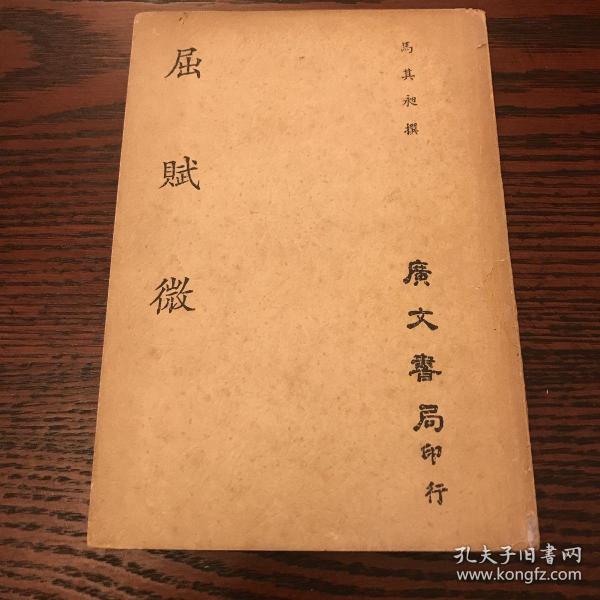 馬其昶撰
廣文書局印行
屈賦微
孔夫子旧書网
www.kongfz.com